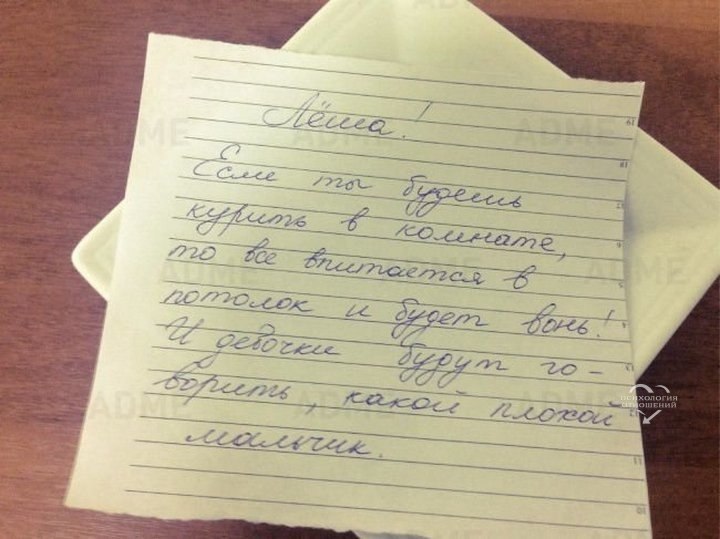 Лёша!
Если ты будешь
курить в комнате,
то все впитается в
потолок и будет вонь!
И девочки будут го-
ворить, какой плохой
мальчик.
ПСИХОЛОГИЯ
ОТНОШЕНИЙ
ADME
ADME
ADME
ADME
ADME